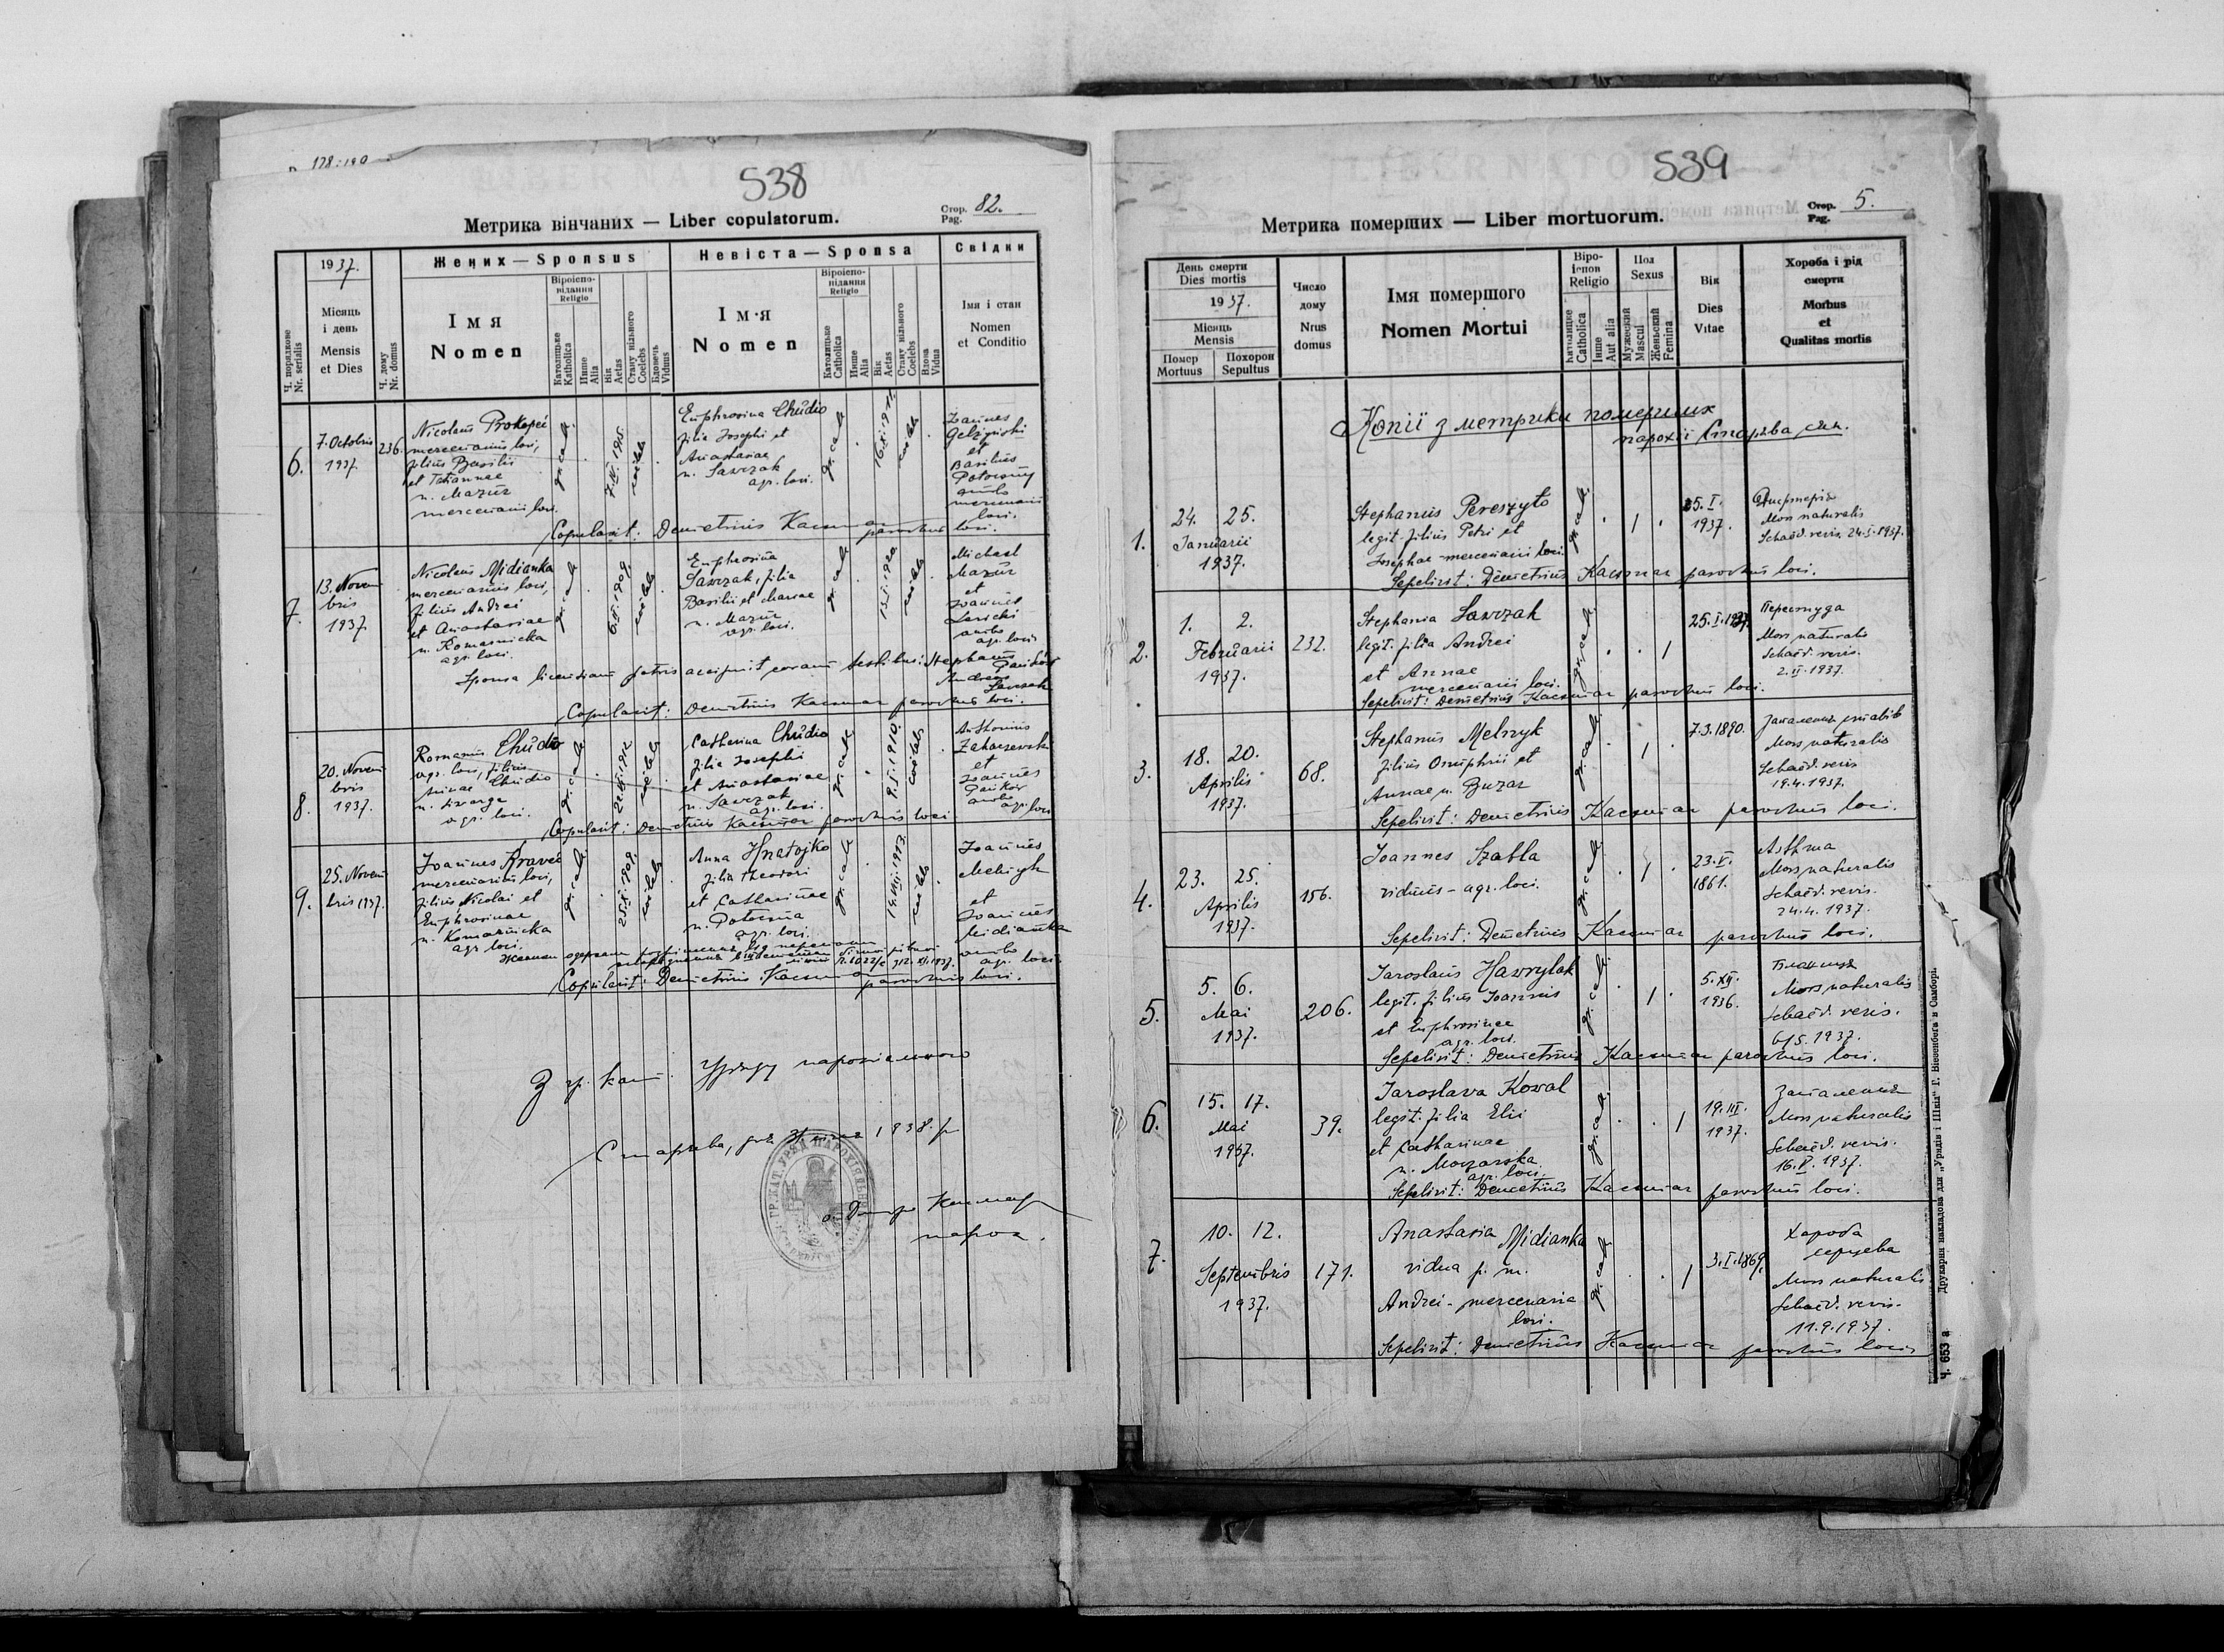 538
Метрика вінчаних — Liber copulatorum.
Стор. Pag. 82.
Ч. порядкове Nr. serialis
1937.
Місяць і день
Mensis et Dies
Ч. дому Nr. domus
Жених — Sponsus
Імя
Nomen
Віроіспо-відання Religio
Католицьке Catholica
Инше Alia
Вік Aetas
Стану вільного Coelebs
Вдовець Viduus
Невіста — Sponsa
Імя
Nomen
Віроіспо-відання Religio
Католицьке Catholica
Инше Alia
Вік Aetas
Стану вільного Coelebs
Вдова Vidua
Свідки
Імя і стан
Nomen et Conditio
6.
7. Octobris
1937.
236.
Nicolaus Prokopei
mercenarius loci,
filius Basilii
et Tatiannae
n. Mazur
mercenarii loci.
gr. cath.
coelebs
Euphrosina Chudio
filia Josephi et
Anastasiae
n. Sawczak
agr. loci.
gr. cath.
coelebs
Joannes
et
Basilius
Potoczny
ambo
mercenarii
loci.
Copulavit: Demetrius Kaczmar parochus loci.
7.
13. Novem
bris
1937
Nicolaus Midianka
mercenarius loci,
filius Andrei
et Anastasiae
n. Komarnicka
agr. loci.
gr. cath.
coelebs
Euphrosina
Sawczak, filia
Basilii et Mariae
n. Mazur
agr. loci.
gr. cath.
13.I.1920
coelebs
Michael
Mazur
et
Joannes
ambo
agr. loci
Sponsa licentiam patris accipit coram testibus: Stephanus
Andreas
Copulavit: Demetrius Kaczmar parochus loci.
8.
20. Novem
bris
1937.
Romanus Chudio
agr. loci, filius
Annae Chudio
agr. loci.
gr. cath.
coelebs
Catharina Chudio
filia Josephi
et Anastasiae
n. Sawczak
agr. loci.
gr. cath.
coelebs
Antonius
et
Joannes
ambo
agr. loci
Copulavit: Demetrius Kaczmar parochus loci
9.
25. Novem
bris 1937.
Joannes Kraveć
mercenarius loci,
filius Nicolai et
Euphrosinae
n. Komarnicka
agr. loci.
gr. cath.
coelebs
Anna Hnatojko
filia Theodori
et Catharinae
n. Potoczna
agr. loci.
gr. cath.
coelebs
Joannes
et
Joannes
Midianka
ambo
agr. loci
Copulavit: Demetrius Kaczmar parochus loci.
З гр. кат. Уряду парохіяльного
Старява, дня 1938. р
о. Дмитро Качмар
парох.
539
Метрика померших — Liber mortuorum.
Стор. Pag. 5.
День смерти
Dies mortis
1937.
Місяць
Mensis
Помер Mortuus
Похорон Sepultus
Число дому
Nrus domus
Імя помершого
Nomen Mortui
Віро-іспов Religio
Католицке Catholica
Інше Aut alia
Пол Sexus
Мужеский Mascul
Женьский Femina
Вік
Dies Vitae
Хороба і рід смерти
Morbus et Qualitas mortis
Копії з метрики померших
парохії Старява
1.
24. 25.
Januarii
1937.
Stephanus Pereszyto
legit. filius Petri et
Josephae mercenarii loci.
gr. cath.
1
15. I.
1937.
Mors naturalis
Schaed. revis. 24.I.1937.
Sepelivit: Demetrius Kaczmar parochus loci.
2.
1. 2.
Februarii
1937.
232.
Stephania Sawczak
legit. filia Andrei
et Annae
mercenarii loci.
gr. cath.
1
25.I.1937.
Перестуда
Mors naturalis
Schaed. revis.
2.II.1937.
Sepelivit: Demetrius Kaczmar parochus loci.
3.
18. 20.
Aprilis
1937.
68.
Stephanus Melnyk
filius Onuphrii et
Annae n. Buzar
gr. cath.
1
7.3.1890.
Mors naturalis
Schaed. revis
19.4.1937.
Sepelivit: Demetrius Kaczmar parochus loci.
4.
23. 25.
Aprilis
1937.
156.
Joannes Szabla
viduus - agr. loci.
gr. cath.
1
23. V.
1861.
Asthma
Mors naturalis
Schaed. revis.
24.4.1937.
Sepelivit: Demetrius Kaczmar parochus loci.
5.
5. 6.
Mai
1937.
206.
Jaroslaus Hawrylak
legit. filius Joannis
et Euphrosinae
agr. loci.
gr. cath.
1
5. XII.
1936.
Mors naturalis
Schaed. revis.
6/5.1937.
Sepelivit: Demetrius Kaczmar parochus loci.
6.
15. 17.
Mai
1937.
39.
Jaroslava Kowal
legit. filia Elii
et Catharinae
n. Moczarska
agr. loci.
gr. cath.
1
19. III.
1937.
Запалення
Mors naturalis
Schaed. revis.
16.V.1937.
Sepelivit: Demetrius Kaczmar parochus loci.
7.
10. 12.
Septembris
1937.
171.
Anastasia Midianka
vidua p. m.
Andrei - mercenaria
loci.
gr. cath.
1
3.I.1869.
Хороба
серцева
Mors naturalis
Schaed. revis.
11.9.1937.
Sepelivit: Demetrius Kaczmar parochus loci
Ч. 653 а Друкарня накладова для „Урядів і Шкіл" Г. Вісенберга в Самборі.